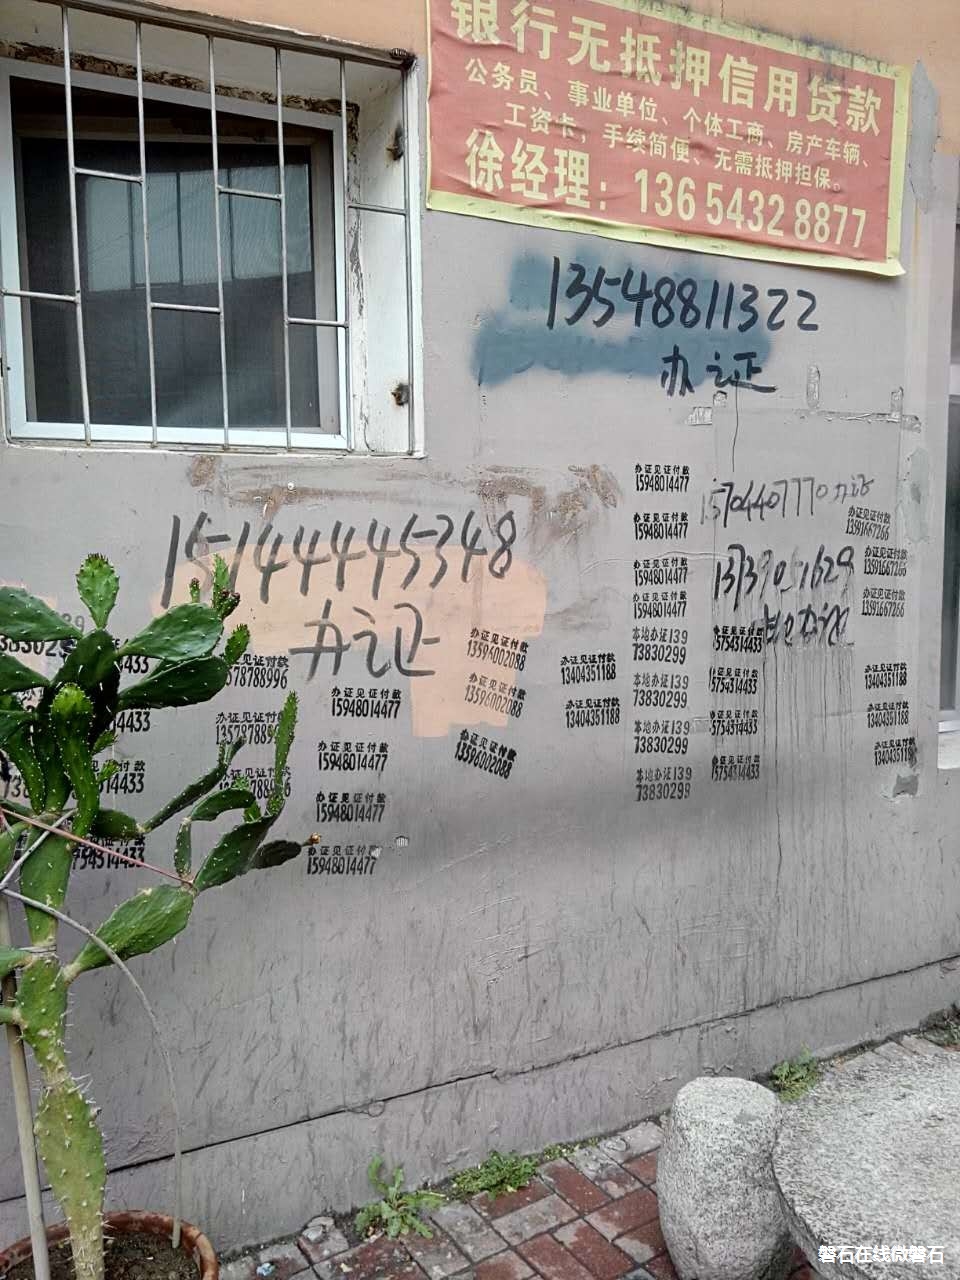 银行无抵押信用贷款
公务员、事业单位、个体工商、房产车辆、
工资卡，手续简便、无需抵押担保。
徐经理：136 5432 8877
13548811322
办证
15144445348
办证
办证见证付款
15948014477
办证见证付款
15948014477
办证见证付款
15948014477
办证见证付款
15948014477
15704407770办证
13139051629
办证
办证见证付款
13591667266
办证见证付款
13591667266
办证见证付款
13591667266
本地办证139
73830299
本地办证139
73830299
本地办证139
73830299
本地办证139
73830299
办证见证付款
15754314433
办证见证付款
15754314433
办证见证付款
15754314433
办证见证付款
15754314433
办证见证付款
13596002088
办证见证付款
13596002088
办证见证付款
13596002088
办证见证付款
13404351188
办证见证付款
13404351188
办证见证付款
13404351188
办证见证付款
13404351188
办证见证付款
13404351188
办证见证付款
15948014477
办证见证付款
15948014477
办证见证付款
15948014477
办证见证付款
15948014477
见证付款
13578788996
办证见证付款
磐石在线微磐石